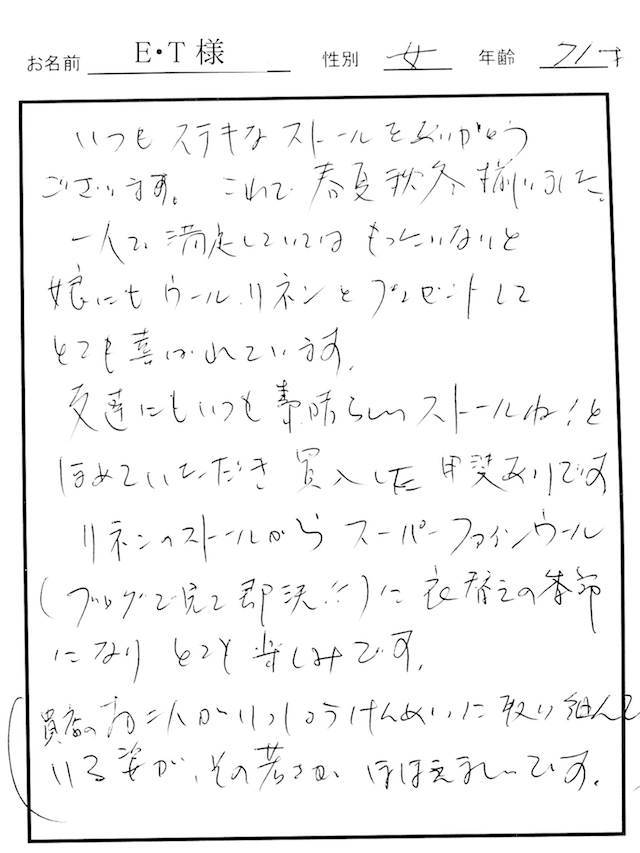 お名前 E・T様 性別 女 年齢 71才
いつもステキなストールをありがとう
ございます。これで春夏秋冬揃いました。
一人で満足していてはもったいないと
娘にもウール、リネンとプレゼントして
とても喜ばれています。
友達にもいつも素晴らしいストールね!と
ほめていただき買入した甲斐ありです
リネンのストールからスーパーファインウール
(ブログで見て即決!!)に衣替えの季節
になりとても楽しみです。
(貴店のお二人がいっしょうけんめいに取り組んで
いる姿が、その若さが ほほえましいです。)